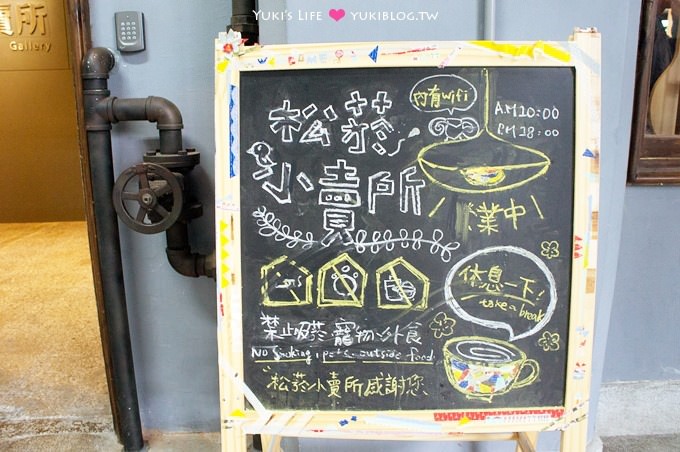 YUKI'S LIFE ❤ YUKIBLOG.TW
賣所
Gallery
松菸
小賣所
內有wifi
AM10:00
PM18:00
營業中
休息一下!
take a break
禁止吸菸、寵物、外食
No Smoking, pets, outside food
松菸小賣所感謝您